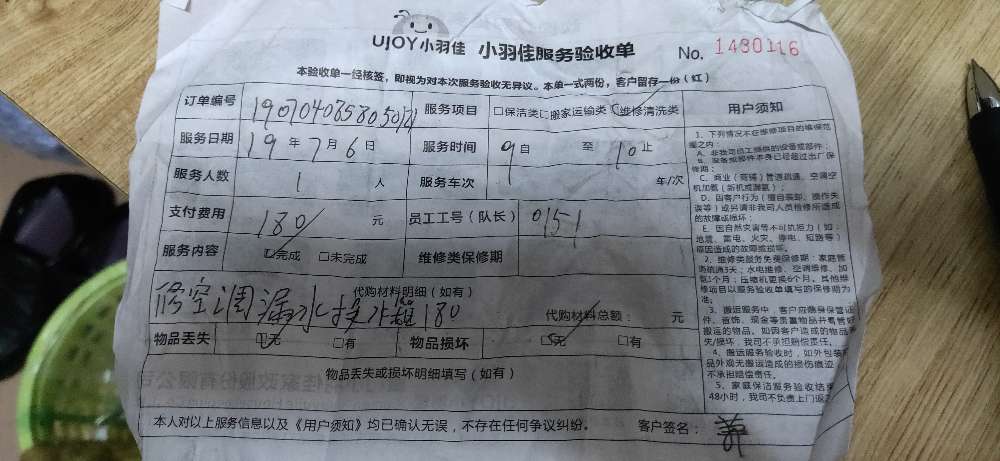 UJOY小羽佳 小羽佳服务验收单 No. 1480116
本验收单一经核签，即视为对本次服务验收无异议。本单一式两份，客户留存一份（红）
订单编号 服务项目 □保洁类□搬家运输类☑维修清洗类
服务日期 19年7月6日 服务时间 9自 至 10止
服务人数 1人 服务车次 车/次
支付费用 180/元 员工工号（队长） 0151
服务内容 ☑完成 □未完成 维修类保修期
代购材料明细（如有）
修空调漏水 180 代购材料总额： 元
物品丢失 ☑无 □有 物品损坏 ☑无 □有
物品丢失或损坏明细填写（如有）
本人对以上服务信息以及《用户须知》均已确认无误，不存在任何争议纠纷。 客户签名：
用户须知
1、下列情况不在维修项目的维保范
围之内：
A、非我司员工提供的设备或部件；
B、设备或部件本身已经超过出厂保
修期；
C、商业（商铺）管道疏通、空调空
机加氨（新机或漏氨）；
D、因客户行为（擅自装卸、操作失
误等）或另请非我司人员检修所造成
的故障或损坏；
E、因自然灾害等不可抗力（如：
地震、雷电、火灾、停电、短路等）
原因造成的故障或损坏。
2、维修类服务免费保修期：家庭管
道疏通3天；水电维修、空调维修、加
氨1个月；压缩机更换6个月。其他维
修项目以服务验收单填写的保修期为
准。
3、搬运服务中，客户应随身保管证
件、首饰、现金等贵重物品并看管好
搬运的物品。如因客户造成的物品
失/损坏，我司不承担赔偿责任。
4、搬运服务验收时，如外包装
品外观无搬运造成的损伤痕迹
不承担赔偿责任。
5、家庭保洁服务验收结束
48小时，我司不负责上门返